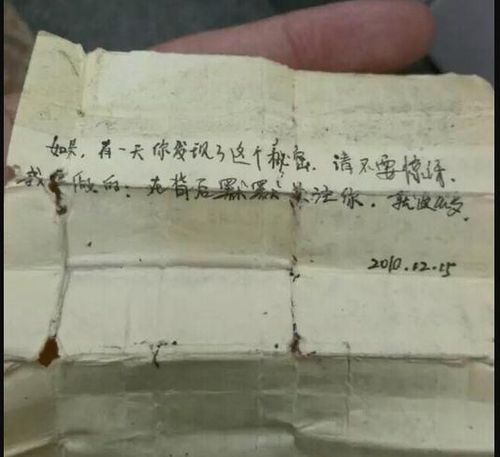 如果,有一天你发现了这个秘密,请不要惊讶.
我 做的,在背后默默关注你.就
2010.12.15